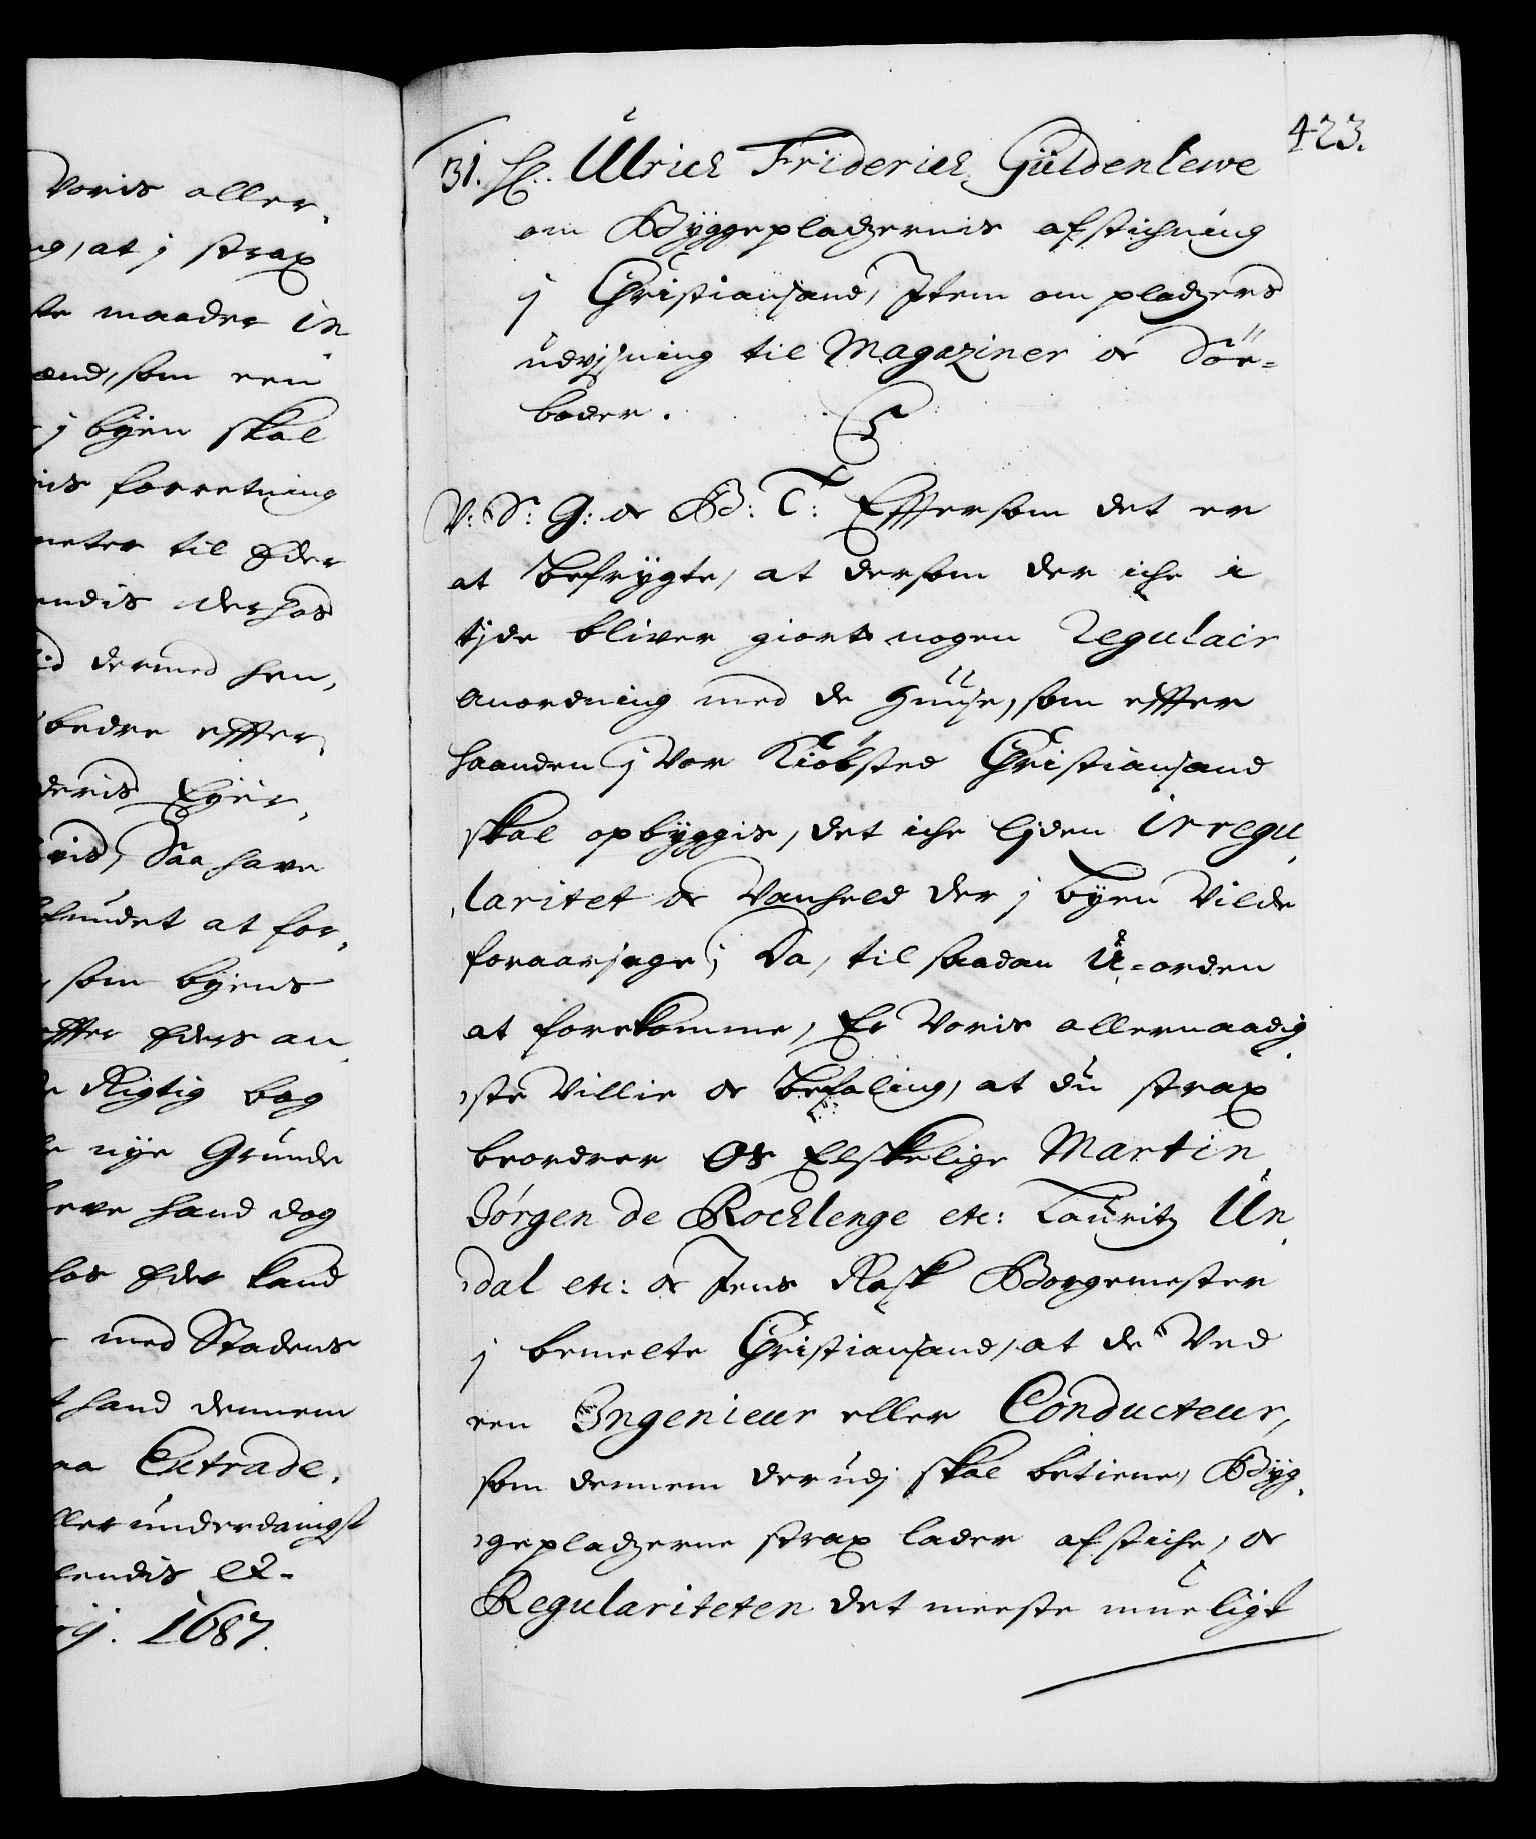 Voris aller,
ng, at j strax
ste maader in
mænd, som een
j byen skal
nis forretning
meter til Eder
endis derhos
dermed hen,
bedre effter,
deris Eyer,
vis, Saa have
funder at for,
som byens
effter Eders an
Rigtig bog
nye Grunde
leve hand dog
hos Eder kand
med Stadens
hand dennem
paa Extrade.
allerunderdanigst
lendis etc.
1687.
423.
31. H. Ulrich Friderich Güldenlewe
om Byggepladzernis afstichning
j Christiansand, Item om pladzers
udvjsning til Magaziner oc Söe-
boder.
V: S: G: oc B: T: Effersom det er
at befrygte, at dersom der iche i
tjde bliver giort nogen Regulair
anordning med de Huuse, som effter
haanden j Vor Kiöbsted Christiansand
skal opbyggis, det iche ljden irregu
laritet oc Vanheld der j byen Vilde
foraarsage; Da, til saadan U-orden
at forekomme, Er Voris allernaadig
ste Villie oc befaling, at du strax
beordrer Os Elskelige Martin
Jörgen de Rocklenge etc: Lauritz Un
dal etc: oc Jens Rask Borgemester
j bemelte Christiansand, at de Ved
een Ingenieur eller Conducteur,
som dennem derudj skal betiene, Byg
gepladzerne strax lader afstiche, oc
Regulariteten det meeste mueligt